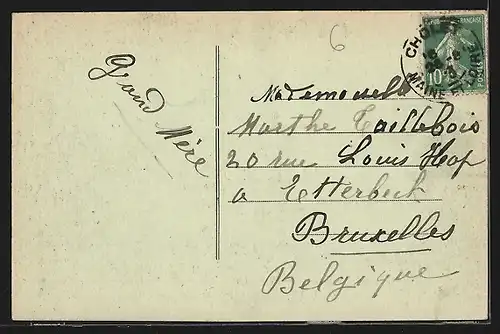 Grand Mère
6
Mademoiselle
Marthe Taillebois
20 rue Louis Hap
a Etterbeck
Bruxelles
Belgique
CHOLET
MAINE-ET-LOIRE
FRANÇAISE
10
POSTES